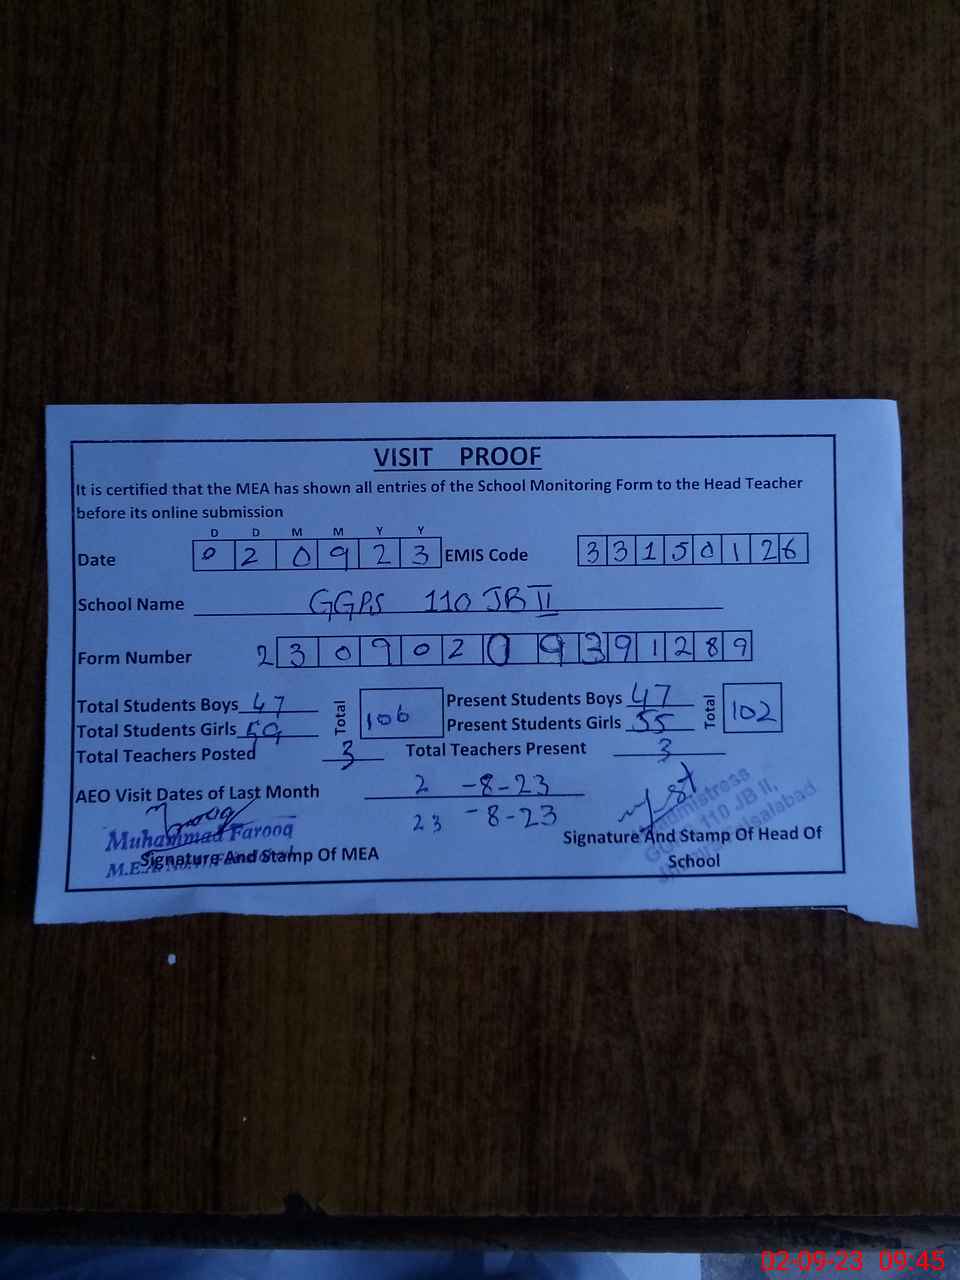 VISIT PROOF
It is certified that the MEA has shown all entries of the School Monitoring Form to the Head Teacher
before its online submission
D D M M Y Y
Date 0 2 0 9 2 3 EMIS Code 3 3 1 5 0 1 2 6
School Name GGPS 110 JB II
Form Number 2 3 0 9 0 2 0 9 3 9 1 2 8 9
Total Students Boys 47 Total 106 Present Students Boys 47 Total 102
Total Students Girls 59 Present Students Girls 55
Total Teachers Posted 3 Total Teachers Present 3
AEO Visit Dates of Last Month 2 -8-23
23 -8-23
Muhammad Farooq
M.E.A
Signature And Stamp Of MEA
110 JB II,
Signature And Stamp Of Head Of
School
02-09-23 09:45